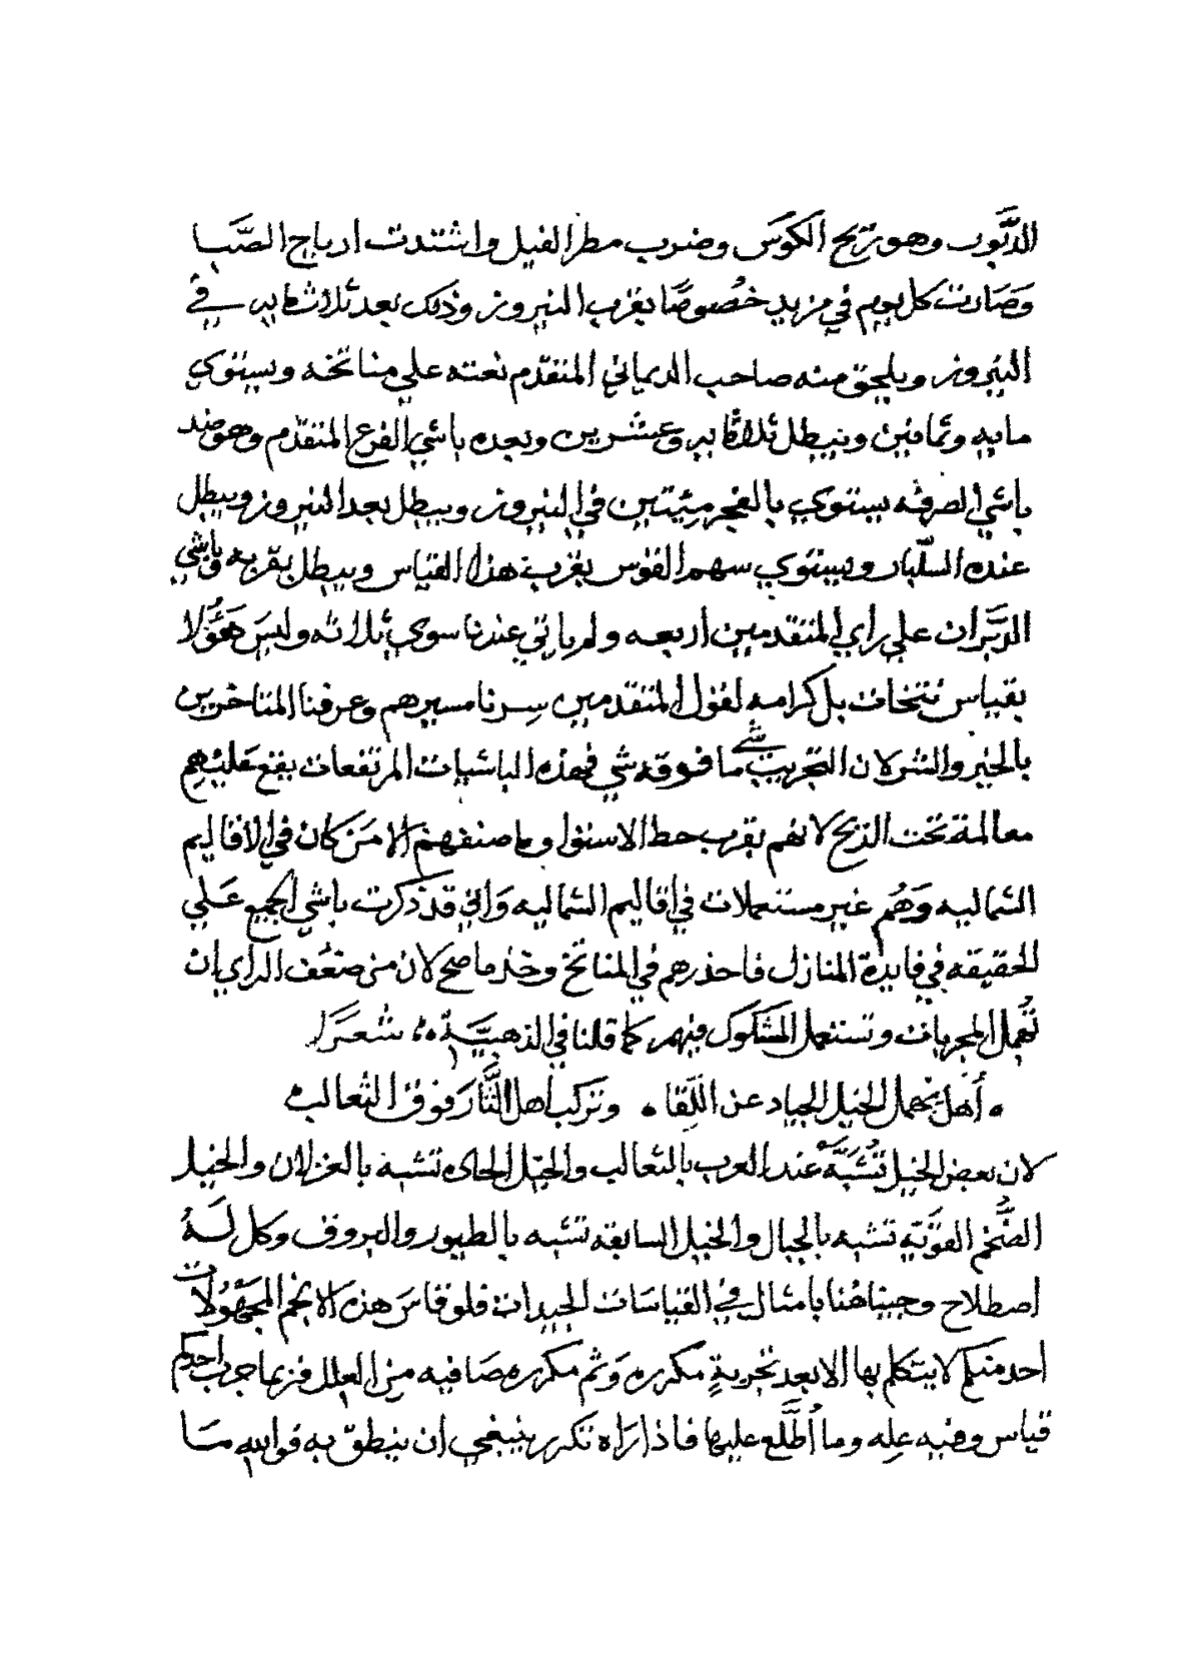 الدَّبُور وهو ريح الكوَس وضرب مطر الفيل واشتدت ارياح الصَّبا
وَصَارت كل يوم في مزيد خصُوصًا بقرب النيروز وذلك بعد ثلاثمايه في
النيروز ويلحق منه صاحب الدماني المتقدّم نعته علي مناتخه ويستوي
مايه وثمانين ويبطل ثلاثمايه وعشرين وبعده باشي الفرع المتقدّم وهو ضد
باشي الصرفه يستوي بالفجر ميتين في النيروز ويبطل بعد النيروز ويبطل
عنده السلّبار ويستوي سهم القوس بقرب هذا القياس ويبطل بقربه وباشي
الدَّبَران علي راي المتقدمين اربعه ولم ياتي عندنا سوي ثلاثه وليسَ هَؤُلا
بقياس نتخات بل كرامه لقول المتقدمين سِرنا مسيرهم وعرفنا المتاخرين
بالخير والشر لان التجريب شي ما فوقه شي فهذه الباشيات المرتفعات يقع عَليْهِم
معالمة تحت الذبح لانهم بقرب خط الاستوا وما صنفهم الا مَن كان في الاقاليم
الشماليه وَهُم غير مستعملات في اقاليم الشماليه وَاني قد ذكرت باشي الجميع عَلي
الحقيقه في فايدة المنازل فاحذرهم في المناتخ وخذ ما صح لان من ضعف الراي ان
تُهمل المجربات وتستعمل المشكوك فيهم كما قلنا في الذهبيَّة شعرًا
أهل تحمل الخيل الجياد عن اللِّقا وتركب اهل الثَّار فوق الثعالب
لان بعض الخيل تُشَبَّه عند العرب بالثعالب والخيل الحاده تشبه بالغزلان والخيل
الضُّخم القوّية تشبه بالجبال والخيل السابقه تشبه بالطيور والبروق وكل لَهُ
اصطلاح وجيناهُنا بامثال في القياسَات الجيدات فلو قاسَ هذه الانجم المجَهُولات
احد منكم لا يتكلم بها الا بعد تجربةٍ مكرره وَثم مكرره صَافيه مِن العلل فربما جرب احدكم
قياس وفيه عِله وما أطَّلع عليها فاذا رَاه تكرر ينبغي ان ينطق به فوالله مَا